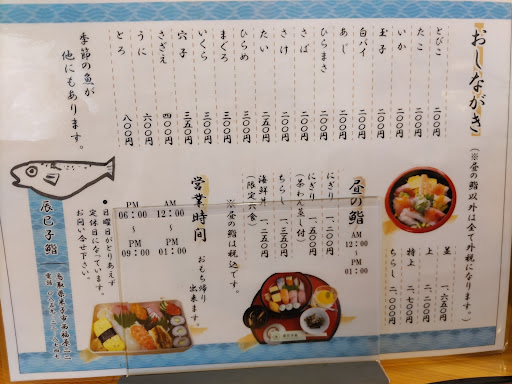 おしながき
(※昼の鮨以外は全て外税になります。)
とびこ 二〇〇円
たこ 二〇〇円
いか 二〇〇円
玉子 二〇〇円
白バイ 二〇〇円
あじ 二〇〇円
ひらまさ 二〇〇円
さば 二〇〇円
さけ 二〇〇円
たい 二五〇円
ひらめ 三〇〇円
まぐろ 三〇〇円
いくら 三〇〇円
穴子 三五〇円
さざえ 四〇〇円
うに 六〇〇円
とろ 八〇〇円
季節の魚が
他にもあります。
並 一、六五〇円
上 二、二〇〇円
特上 二、七〇〇円
ちらし 二、〇〇〇円
昼の鮨
AM
12:00
～
PM
01:00
にぎり 一、二五〇円
にぎり 一、五〇〇円
(茶わん蒸し付)
ちらし 一、二五〇円
海鮮丼 一、三五〇円
(限定六食)
※昼の鮨は税込です。
営業時間
AM
12:00
～
PM
01:00
PM
06:00
～
PM
09:00
おもち帰り
出来ます。
●日曜日がとりあえず
定休日になっています。
お問い合せ下さい。
辰巳子鮨
鳥取県米子市西福原
電話